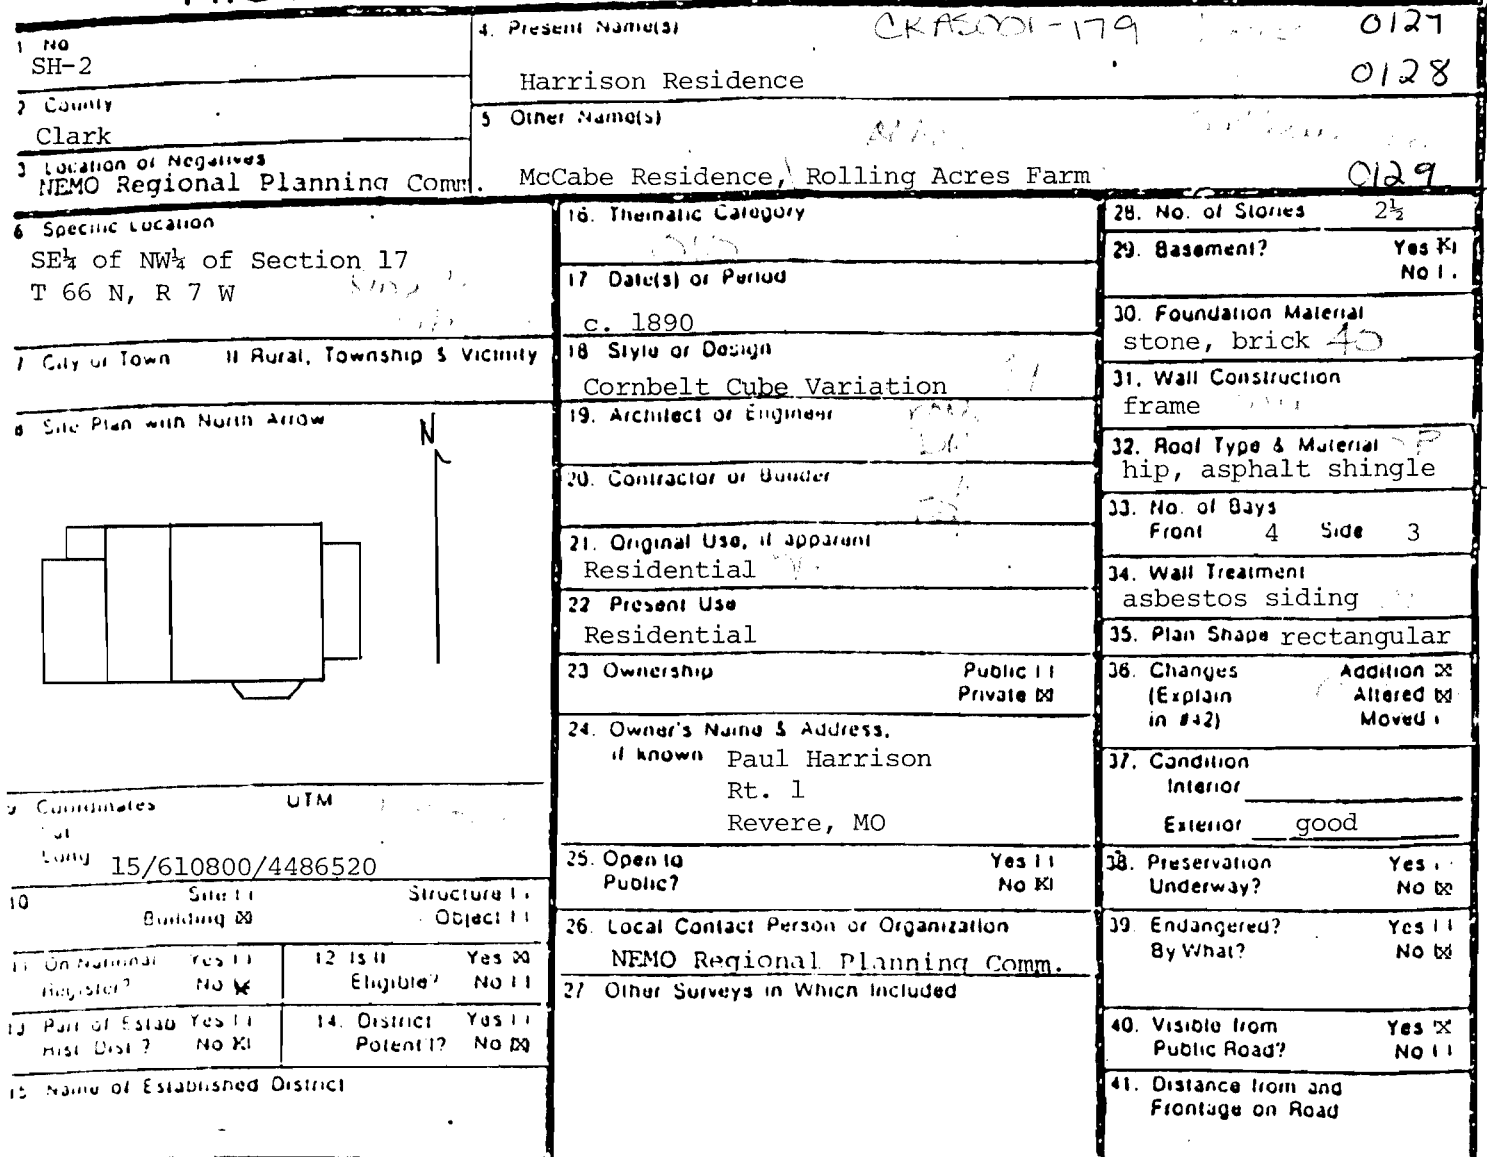 1 No
SH-2
2 County
Clark
3 Location of Negatives
NEMO Regional Planning Comm.
4. Present Name(s)
CKAS001-179
0127
Harrison Residence
0128
5 Other Name(s)
McCabe Residence, Rolling Acres Farm
0129
6 Specific Location
SE¼ of NW¼ of Section 17
T 66 N, R 7 W
7 City or Town If Rural, Township & Vicinity
8 Site Plan with North Arrow
N
9 Coordinates UTM
Lat
Long
15/610800/4486520
10 Site [ ] Structure [ ]
Building [X] Object [ ]
11 On National Register? Yes [ ] No [X]
12 Is It Eligible? Yes [X] No [ ]
13 Part of Estab Hist Dist? Yes [ ] No [X]
14. District Potent'l? Yes [ ] No [X]
15 Name of Established District
16. Thematic Category
17 Date(s) or Period
c. 1890
18 Style or Design
Cornbelt Cube Variation
19. Architect or Engineer
20. Contractor or Builder
21. Original Use, if apparent
Residential
22 Present Use
Residential
23 Ownership Public [ ]
Private [X]
24. Owner's Name & Address,
if known
Paul Harrison
Rt. 1
Revere, MO
25. Open to Public? Yes [ ]
No [X]
26. Local Contact Person or Organization
NEMO Regional Planning Comm.
27 Other Surveys in Which Included
28. No. of Stories 2½
29. Basement? Yes [X]
No [ ]
30. Foundation Material
stone, brick 40
31. Wall Construction
frame
32. Roof Type & Material
hip, asphalt shingle
33. No. of Bays
Front 4 Side 3
34. Wall Treatment
asbestos siding
35. Plan Shape rectangular
36. Changes Addition [X]
(Explain Altered [X]
in #42) Moved [ ]
37. Condition
Interior
Exterior good
38. Preservation Yes [ ]
Underway? No [X]
39. Endangered? Yes [ ]
By What? No [X]
40. Visible from Yes [X]
Public Road? No [ ]
41. Distance from and
Frontage on Road